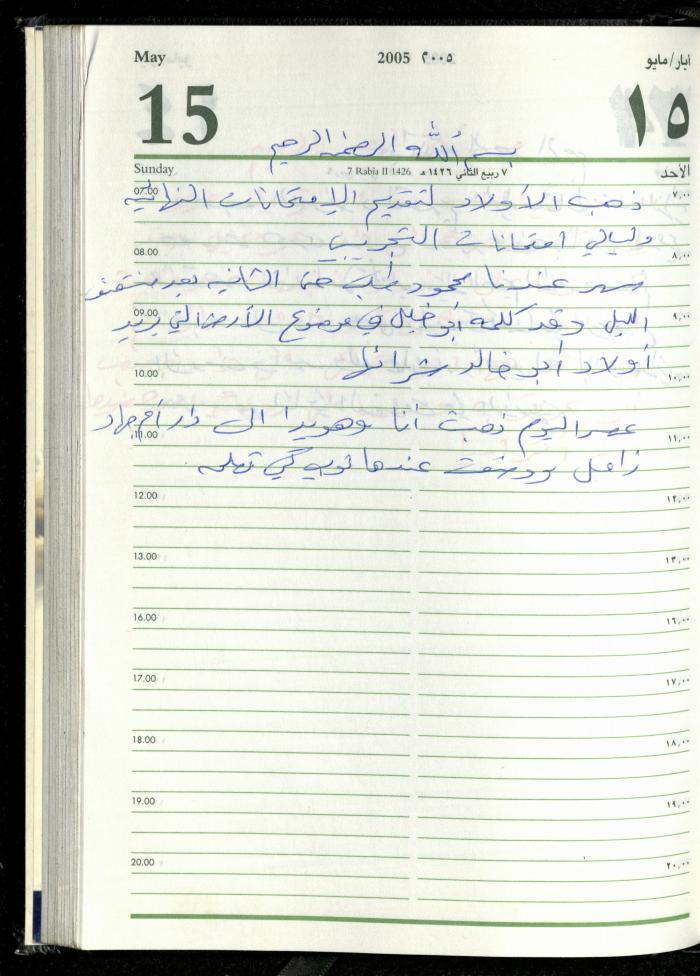 May 2005 ٢٠٠٥ ايار/مايو
15 ١٥
بسم الله الرحمن الرحيم
Sunday 7 Rabia II 1426 ٧ ربيع الثاني ١٤٢٦ هـ الأحد
07.00 ٧,٠٠
ذهب الأولاد لتقديم الإمتحانات النهائية
وليالي امتحانات التجريبي
08.00 ٨,٠٠
سهر عندنا محمود حتى الثانية بعد منتصف
09.00 ٩,٠٠
الليل وقد كلمه أبو خليل في موضوع الأرض التي يريد
أولاد أبو خالد شرائها
10.00 ١٠,٠٠
عصر اليوم ذهبت أنا وهويدا الى دار أم جهاد
11.00 ١١,٠٠
زامل ووضعت عندها ثوب كي تعمله
12.00 ١٢,٠٠
13.00 ١٣,٠٠
16.00 ١٦,٠٠
17.00 ١٧,٠٠
18.00 ١٨,٠٠
19.00 ١٩,٠٠
20.00 ٢٠,٠٠